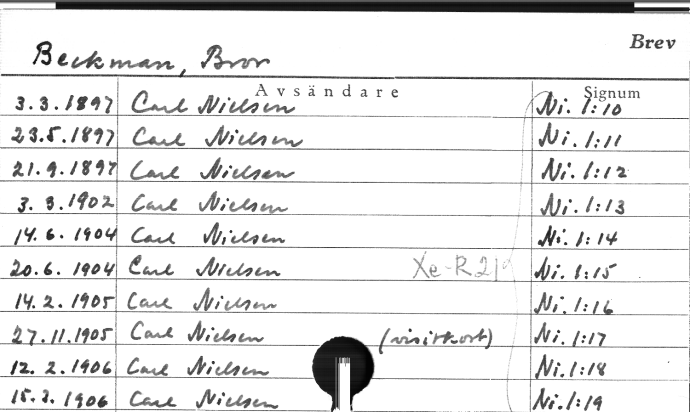 Brev
Beckman, Bror
Avsändare Signum
3.3.1897 Carl Nielsen Ni. 1:10
23.5.1897 Carl Nielsen Ni. 1:11
21.9.1897 Carl Nielsen Ni. 1:12
3.3.1902 Carl Nielsen Ni. 1:13
14.6.1904 Carl Nielsen Ni. 1:14
20.6.1904 Carl Nielsen Xe-R 219 Ni. 1:15
14.2.1905 Carl Nielsen Ni. 1:16
27.11.1905 Carl Nielsen (visitkort) Ni. 1:17
12.2.1906 Carl Nielsen Ni. 1:18
15.3.1906 Carl Nielsen Ni. 1:19